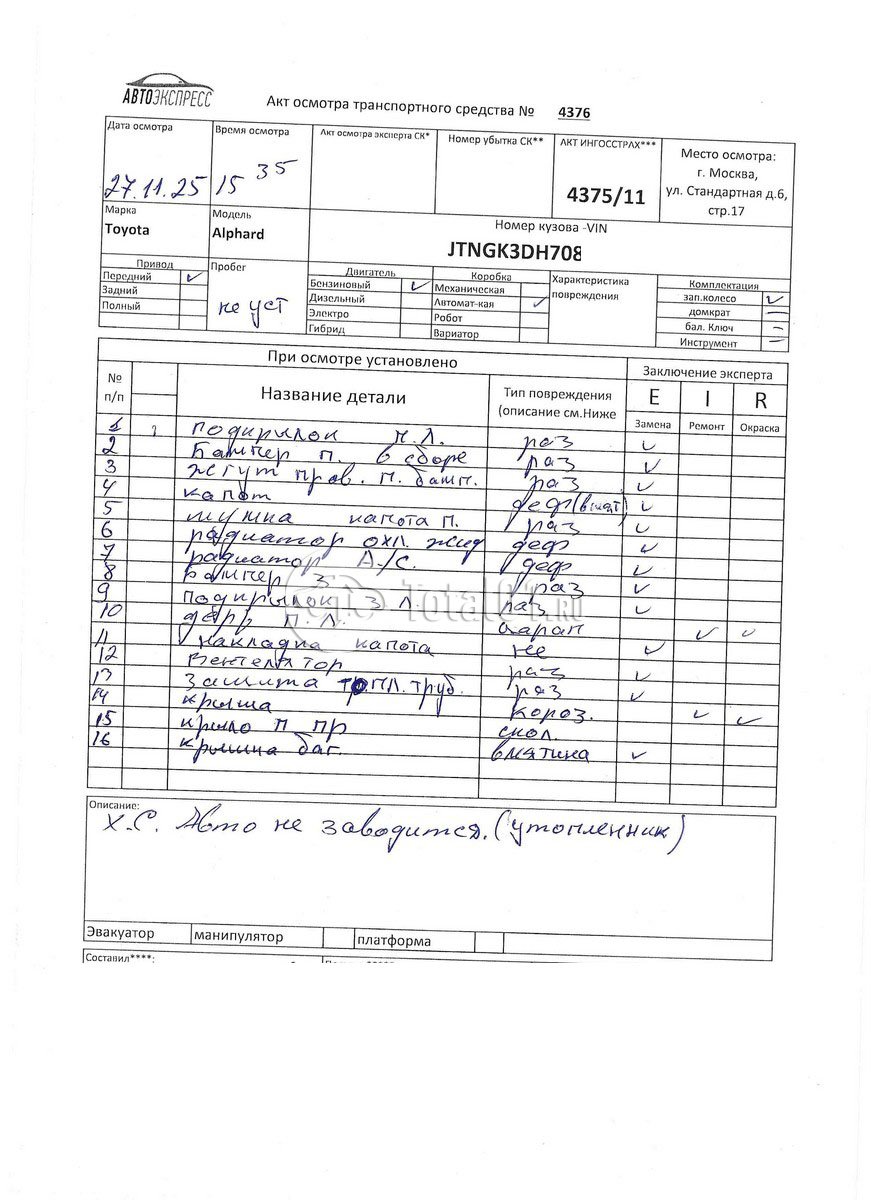 АВТОЭКСПРЕСС
Акт осмотра транспортного средства № 4376
Дата осмотра
27.11.25
Время осмотра
15 35
Акт осмотра эксперта СК*
Номер убытка СК**
АКТ ИНГОССТРАХ***
4375/11
Место осмотра:
г. Москва,
ул. Стандартная д.6,
стр.17
Марка
Toyota
Модель
Alphard
Номер кузова -VIN
JTNGK3DH708
Привод
Передний ✓
Задний
Полный
Пробег
не уст
Двигатель
Бензиновый ✓
Дизельный
Электро
Гибрид
Коробка
Механическая
Автомат-кая ✓
Робот
Вариатор
Характеристика
повреждения
Комплектация
зап.колесо ✓
домкрат —
бал. Ключ —
Инструмент —
При осмотре установлено
Заключение эксперта
№
п/п
Название детали
Тип повреждения
(описание см.Ниже
E I R
Замена Ремонт Окраска
1 подкрылок п.л. раз ✓
2 Бампер п. в сборе раз ✓
3 жгут пров. п. бамп. раз ✓
4 капот деф ✓
5 капота п. раз ✓
6 радиатор охл. жид деф ✓
7 радиатор А/С. деф ✓
8 Бампер з раз ✓
9 подкрылок з л. раз ✓
10 п.л. царап ✓ ✓
11 накладка капота не ✓
12 Вентелятор раз ✓
13 Защита топл. труб. раз ✓
14 крыша короз. ✓ ✓
15 крыло п пр скол.
16 крышка баг. вмятина ✓
Total01.RU
Описание:
Х.С. Авто не заводится. (утопленник)
Эвакуатор манипулятор платформа
Составил****: